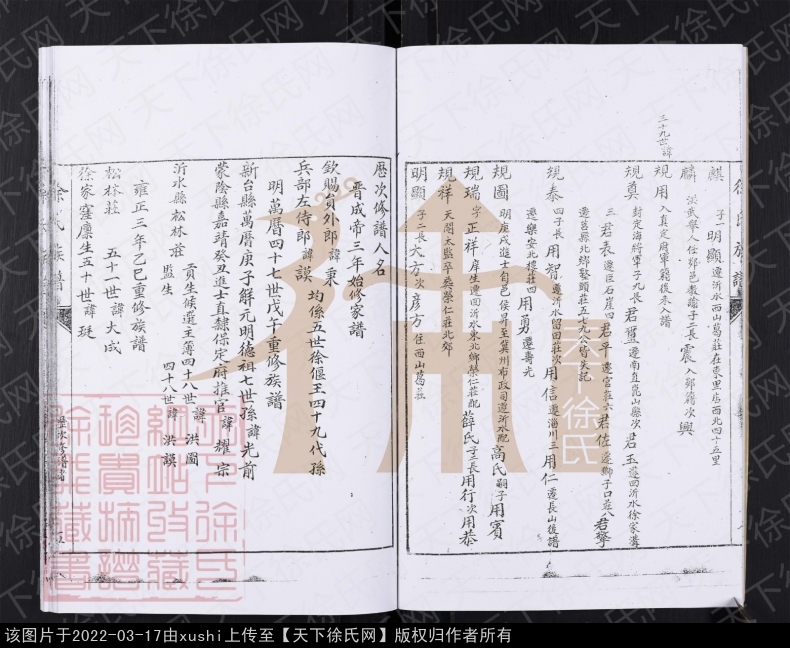 三十九世諱
麒 子一明顯遷沂水西山葛莊在東里店西北四十五里
麟 洪武舉人任鄒邑教諭子二長震入鄒籍次興
規用 入真定府軍籍後未入譜
規奠 封定海將軍子九長君遷南直崑山縣次君玉遷回沂水徐家溝
三君表遷臣石崖四君平遷官莊六君佐遷獅子口莊八君擎
遷莒縣北鄉鰲頭莊五七九公皆失記
規泰 四子長用智遷沂水留田莊次用信遷淄川三用仁遷長山後譜
遷樂安北樸莊四用勇遷壽光
規圖 明庚戌進士自邑侯升至冀州布政司遷沂水配高氏嗣子用賓
規瑞 字正祥庠生遷回沂水東北鄉榮仁莊配薛氏子二長用行次用恭
規祥 天閣太監卒葬榮仁莊北郊
明顯 子二長大方次彥方住西山葛莊
徐氏族譜
歷次修譜人名
晋成帝三年始修家譜
欽賜貟外郎諱秉
兵部左侍郎諱謨
均係五世徐偃王四十九代孫
明萬曆四十七世戊午重修族譜
新台縣萬曆庚子解元明德祖七世孫諱光前
蒙陰縣嘉靖癸丑進士直隸保定府推官諱耀宗
沂水縣松林莊
貢生候選主簿四十八世諱洪圖
監生 四十八世諱洪謨
雍正三年乙巳重修族譜
松林莊 五十一世諱大成
徐家窪廩生五十世諱珽
徐氏族譜
歷次修譜諸
天下徐氏网
徐氏
该图片于2022-03-17由xushi上传至【天下徐氏网】版权归作者所有